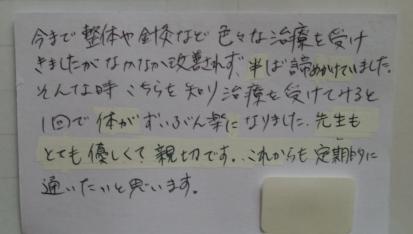 今まで整体や針灸など色々な治療を受け
きましたがなかなか改善されず、半ば諦めかけていました。
そんな時こちらを知り治療を受けてみると
1回で体がずいぶん楽になりました。先生も
とても優しくて親切です。これからも定期的に
通いたいと思います。